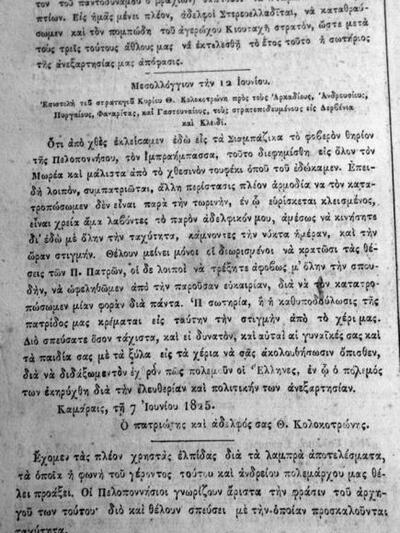 τον τοῦ παντοδυνάμου ὁ βραχίων
πτίων. Εἰς ἡμᾶς μένει πλέον, ἀδελφοὶ Στερεοελλαδῖται, νὰ καταθραύ-
σωμεν καὶ τὸν πομπώδη τοῦ ἀγερώχου Κιουταχῆ στρατὸν, ὥστε μετὰ
τοὺς τρεῖς τούτους ἄθλους μας νὰ ἐκτελεσθῇ τὸ ἔτος τοῦτο ἡ σωτήριος
τῆς ἀνεξαρτησίας μας ἀπόφασις.
Μεσολόγγιον τὴν 12 Ἰουνίου.
Ἐπιστολὴ τοῦ στρατηγοῦ Κυρίου Θ. Κολοκοτρώνη πρὸς τοὺς Ἀρκαδίους, Ἀνδρουσίους,
Πυργαίους, Φαναρίτας, καὶ Γαστουναίους, τοὺς στρατοπεδευμένους εἰς Δερβένια
καὶ Κλειδί.
Ὅτι ἀπὸ χθὲς ἐκλείσαμεν ἐδῶ εἰς τὰ Σιαμπάζικα τὸ φοβερὸν θηρίον
τῆς Πελοποννήσου, τὸν Ἰμπραήμπασσα, τοῦτο διεφημίσθη εἰς ὅλον τὸν
Μωρέα καὶ μάλιστα ἀπὸ τὸ χθεσινὸν τουφέκι ὁποῦ τοῦ ἐδώκαμεν. Ἐπει-
δὴ λοιπὸν, συμπατριῶται, ἄλλη περίστασις πλέον ἁρμοδία νὰ τὸν κατα-
τροπώσωμεν δὲν εἶναι παρὰ τὴν τωρινὴν, ἐν ᾧ εὑρίσκεται κλεισμένος,
εἶναι χρεία ἅμα λαβόντες τὸ παρὸν ἀδελφικόν μου, ἀμέσως νὰ κινήσητε
δι' ἐδὼ μὲ ὅλην τὴν ταχύτητα, κάμνοντες τὴν νύκτα ἡμέραν, καὶ τὴν
ὥραν στιγμήν. Θέλουν μείνει μόνοι οἱ διωρισμένοι νὰ κρατῶσι τὰς θέ-
σεις τῶν Π. Πατρῶν, οἱ δὲ λοιποὶ νὰ τρέξητε ἀφόβως μ' ὅλην τὴν σπου-
δὴν, νὰ ὠφεληθῶμεν ἀπὸ τὴν παροῦσαν εὐκαιρίαν, διὰ νὰ τὸν κατατρο-
πώσωμεν μίαν φορὰν διὰ πάντα. Ἡ σωτηρία, ἢ ἡ καθυποδούλωσις τῆς
πατρίδος μας κρέμαται εἰς ταύτην τὴν στιγμὴν ἀπὸ τὸ χέρι μας.
Διὸ σπεύσατε ὅσον τάχιστα, καὶ εἰ δυνατὸν, καὶ αὐταὶ αἱ γυναῖκές σας καὶ
τὰ παιδία σας μὲ τὰ ξύλα εἰς τὰ χέρια νὰ σᾶς ἀκολουθήσωσιν ὄπισθεν,
διὰ νὰ διδάξωμεν τὸν ἐχθρὸν πῶς πολεμοῦν οἱ Ἕλληνες, ἐν ᾧ ὁ πόλεμός
των ἐκηρύχθη διὰ τὴν ἐλευθερίαν καὶ πολιτικήν των ἀνεξαρτησίαν.
Καμάραις, τῇ 7 Ἰουνίου 1825.
Ὁ πατριώτης καὶ ἀδελφός σας Θ. Κολοκοτρώνης.
Ἔχομεν τὰς πλέον χρηστὰς ἐλπίδας διὰ τὰ λαμπρὰ ἀποτελέσματα,
τὰ ὁποῖα ἡ φωνὴ τοῦ γέροντος τούτου καὶ ἀνδρείου πολεμάρχου μας θέ-
λει προάξει. Οἱ Πελοποννήσιοι γνωρίζουν ἄριστα τὴν φράσιν τοῦ ἀρχη-
γοῦ των τούτου· διὸ καὶ θέλουν σπεύσει μὲ τὴν ὁποίαν προσκαλοῦνται
ταχύτητα.